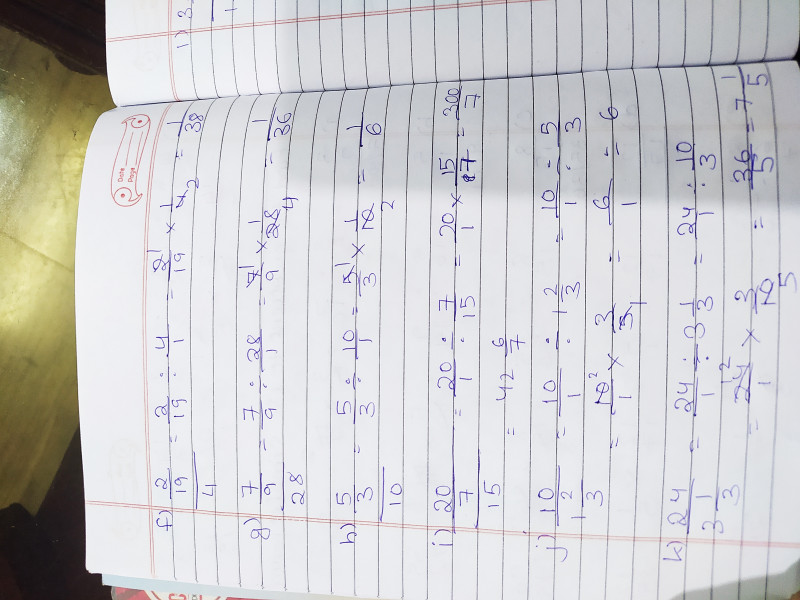 Date
Page
f) 2/19 / 4 = 2/19 ÷ 4/1 = 2̶ 1/19 × 1/4̶ 2 = 1/38
g) 7/9 / 28 = 7/9 ÷ 28/1 = 7̶ 1/9 × 1/2̶8̶ 4 = 1/36
h) 5/3 / 10 = 5/3 ÷ 10/1 = 5̶ 1/3 × 1/1̶0̶ 2 = 1/6
i) 20 / 7/15 = 20/1 ÷ 7/15 = 20/1 × 15/7 = 300/7
= 42 6/7
j) 10 / 1 2/3 = 10/1 ÷ 1 2/3 = 10/1 ÷ 5/3
= 1̶0̶ 2/1 × 3/5̶ 1 = 6/1 = 6
k) 24 / 3 1/3 = 24/1 ÷ 3 1/3 = 24/1 ÷ 10/3
= 2̶4̶ 12/1 × 3/1̶0̶ 5 = 36/5 = 7 1/5